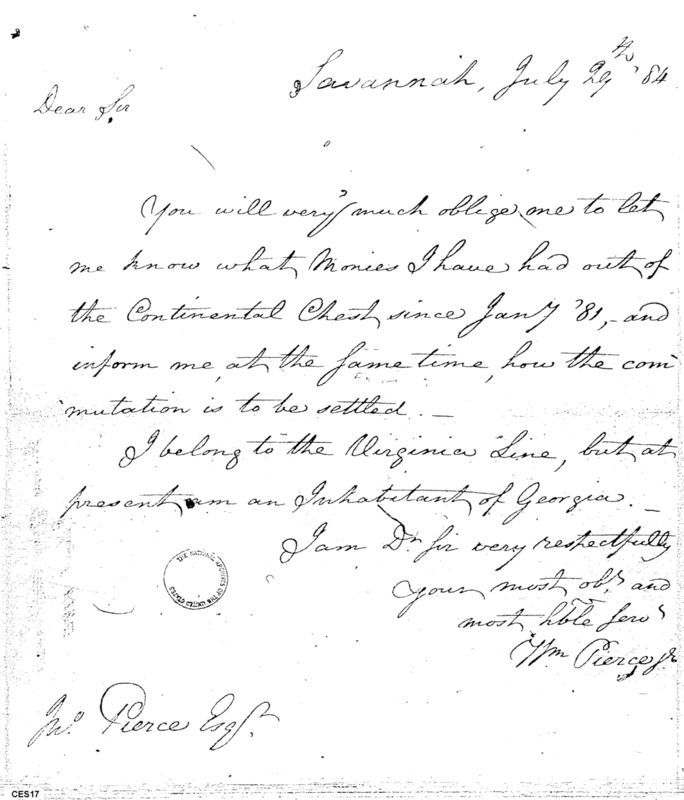 Savannah, July 29th '84
Dear Sir
You will very much oblige me to let
me know what Monies I have had out of
the Continental Chest since Jany '81, - and
inform me, at the same time, how the com
mutation is to be settled. -
I belong to the Virginia Line, but at
present am an Inhabitant of Georgia. -
I am Dr Sir very respectfully
your most obt and
most hble servt
Wm Pierce Jr
THE NATIONAL ARCHIVES OF THE UNITED STATES
Jno. Pierce Esqr.
CES17